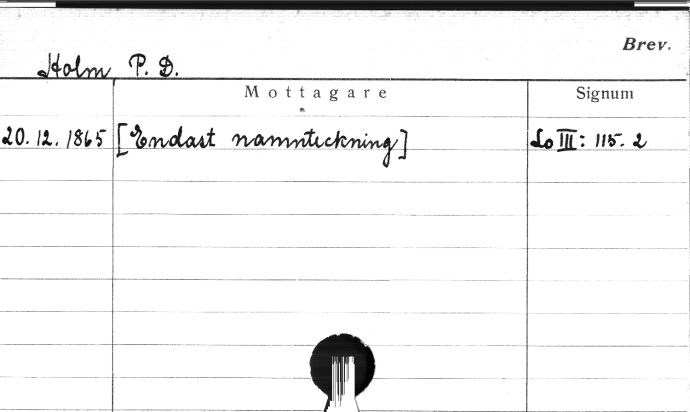 Brev.
Holm P. D.
Mottagare Signum
20.12.1865 [Endast namnteckning] Lo III: 115. 2